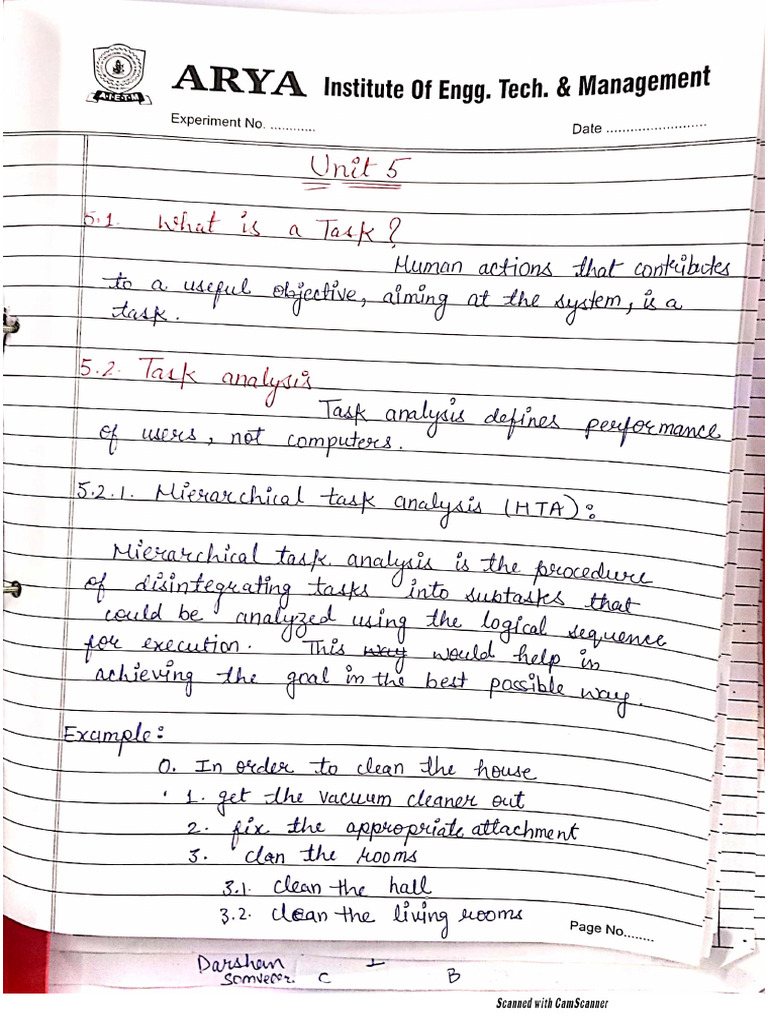 ARYA Institute Of Engg. Tech. & Management
A.I.E.T.M
Experiment No. ............
Date .........................
Unit 5
5.1. What is a Task?
Human actions that contributes
to a useful objective, aiming at the system, is a
task.
5.2. Task analysis
Task analysis defines performance
of users, not computers.
5.2.1. Hierarchical task analysis (HTA):
Hierarchical task analysis is the procedure
of disintegrating tasks into subtasks that
could be analyzed using the logical sequence
for execution. This way would help in
achieving the goal in the best possible way.
Example:
0. In order to clean the house
1. get the vacuum cleaner out
2. fix the appropriate attachment
3. clan the rooms
3.1. clean the hall
3.2. clean the living rooms
Page No........
Darshan
C
B
Scanned with CamScanner